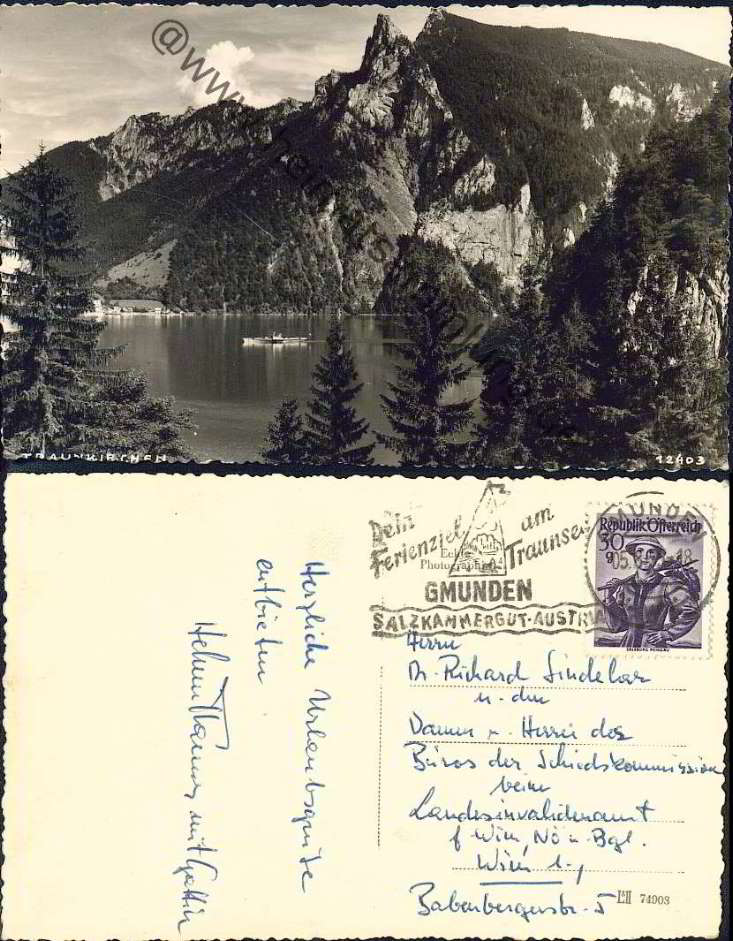 TRAUNKIRCHEN
12403
Herzliche Urlaubsgrüße
entbieten
Helmut mit Gattin
Dein Ferienziel am Traunsee
Echte
Photographie
GMUNDEN
SALZKAMMERGUT-AUSTRIA
GMUNDEN
Republik Österreich
30
Herrn
Dr. Richard Sindelar
u. den
Damen u. Herren des
Büros der Schiedskommission
beim
Landesinvalidenamt
f. Wien, Nö u. Bgl.
Wien 1.,
Babenbergerstr. 5
74903